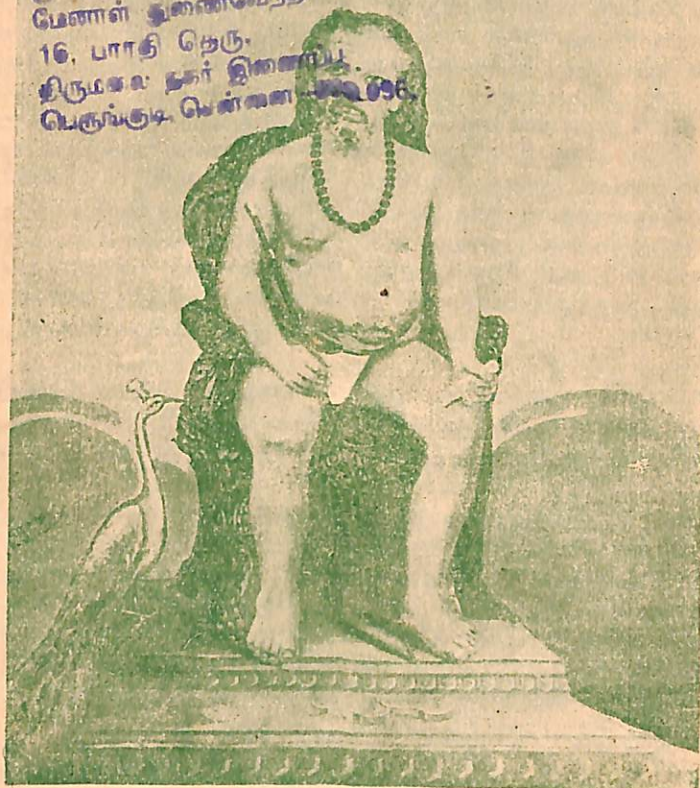 மேனாள் துணைவேந்தர்
16, பாரதி தெரு,
திருமலை நகர் இணைப்பு,
பெருங்குடி, சென்னை 096.